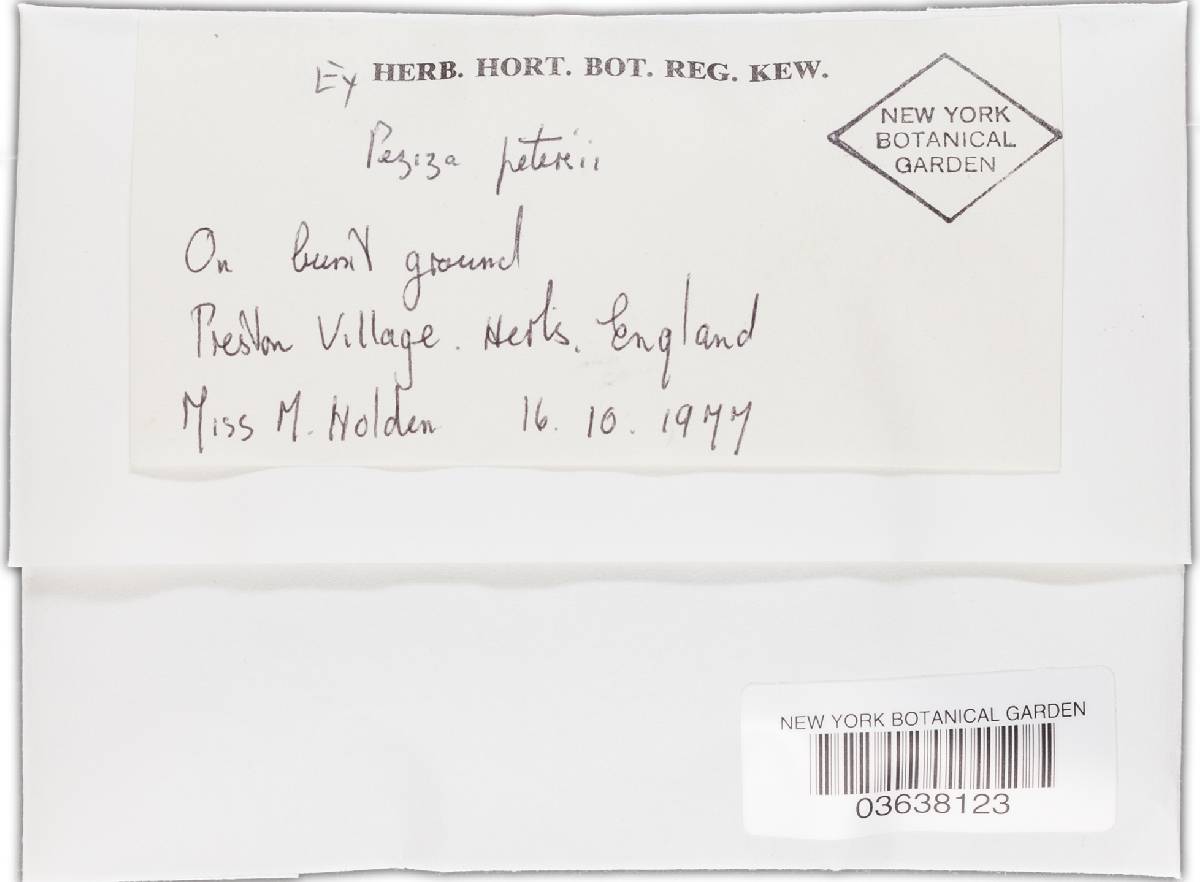 Ex HERB. HORT. BOT. REG. KEW.
NEW YORK
BOTANICAL
GARDEN
Peziza petersii
On burnt ground
Preston Village. Herts. England
Miss M. Holden 16. 10. 1977
NEW YORK BOTANICAL GARDEN
03638123